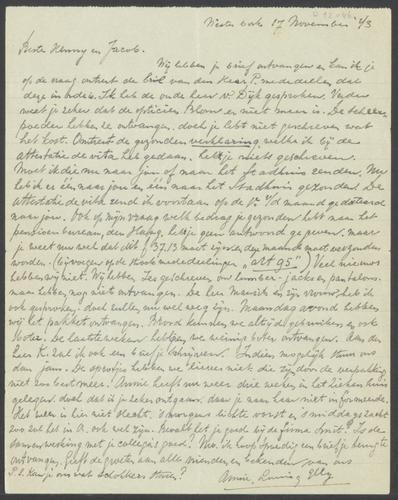 Westerbork 17 November '43
Beste Henny en Jacob.
Wij hebben je brief ontvangen en kan ik je
op de vraag omtrent de bril van den Heer P. mededeelen dat
deze in orde is. Ik heb de oude heer v. Dijk gesproken. Verder
weet je zeker dat de opticien Blom er niet meer is. De scheer-
poeder hebben we ontvangen, doch je hebt niet geschreven wat
het kost. Omtrent de gezonden verklaring, welke ik bij de
attestatie de vita heb gedaan, heb je niets geschreven.
Moet ik die nu naar jou of naar het Stadhuis zenden. Nu
heb ik er één naar jou en één naar het Stadhuis gezonden. De
attestatie de vita zend ik voortaan op de 1e v/d maand gedateerd
naar jou. Ook op mijn vraag welk bedrag je gezonden hebt naar het
pensioen bureau, den Haag, heb je geen antwoord gegeven, maar
je weet nu wel dat dit ƒ 37.13 moet zijn en iedere maand moet verzonden
worden (bijvoegen op de strook mededeelingen "art 95") Veel nieuws
hebben wij niet. Wij hebben geschreven om lumber-jacks en pantalons
maar hebben nog niets ontvangen. De heer en zijn vrouw heb ik
ook gesproken, doch zullen nu wel weg zijn. Maandagavond hebben
wij het pakket ontvangen. Brood kunnen we altijd gebruiken en ook
boter. De laatste weken hebben we weinig boter ontvangen. Aan den
heer K. zal ik ook een briefje schrijven. Indien mogelijk stuur ons
dan jam. De hebben we liever niet die zijn door de verpakking
niet zoo best meer. Annie heeft nu weer drie weken in het ziekenhuis
gelegen. doch dat is je zeker ontgaan, daar je naar haar niet informeerde.
Het weer is hier niet slecht, 's morgens lichte vorst en 's middags zacht
zoo zal het in A. ook wel zijn. Bevalt het je goed bij de firma Smit? Is de
samenwerking met je collega's goed? Nu, ik hoop spoedig een briefje terug te
ontvangen. Geeft de groeten aan alle vrienden en bekenden van ons
P.S. Kun je ons wat sturen? Annie, Louis, Elly